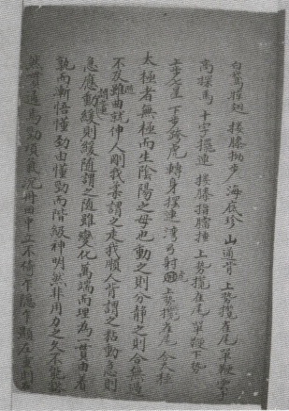 白鶴晾翅 摟膝拗步 海底珍 山通背 上勢攬雀尾 單鞭 雲手
高探馬 十字擺連 摟膝指襠捶 上勢攬雀尾 單鞭 下勢
上步七星 下步跨虎 轉身擺連 灣弓射虎 上勢攬雀尾 合太極
太極者無極而生陰陽之母也動之則分靜之則合無過
不及隨曲就伸人剛我柔謂之走我順人背謂之粘動急則
急應動緩則緩隨謂之隨雖變化萬端而理為一貫由着
熟而漸悟懂勁由懂勁而階級神明然非用力之久不能豁
然貫通焉勁頂氣沉丹田中不偏不倚 隱 顯左重則